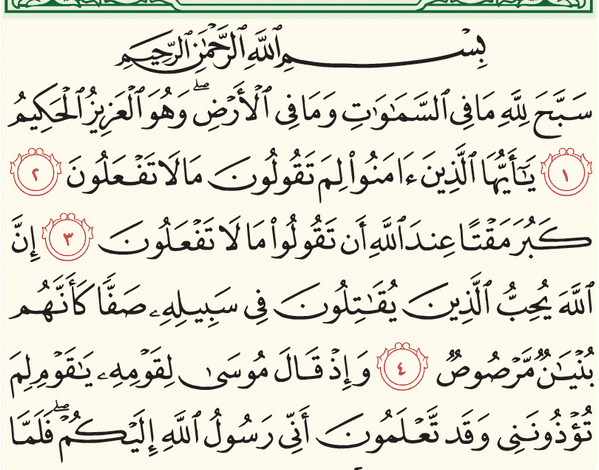 بِسْمِ ٱللَّهِ ٱلرَّحْمَٰنِ ٱلرَّحِيمِ
سَبَّحَ لِلَّهِ مَا فِى ٱلسَّمَٰوَٰتِ وَمَا فِى ٱلْأَرْضِۖ وَهُوَ ٱلْعَزِيزُ ٱلْحَكِيمُ
١ يَٰٓأَيُّهَا ٱلَّذِينَ ءَامَنُوا۟ لِمَ تَقُولُونَ مَا لَا تَفْعَلُونَ ٢
كَبُرَ مَقْتًا عِندَ ٱللَّهِ أَن تَقُولُوا۟ مَا لَا تَفْعَلُونَ ٣ إِنَّ
ٱللَّهَ يُحِبُّ ٱلَّذِينَ يُقَٰتِلُونَ فِى سَبِيلِهِۦ صَفًّا كَأَنَّهُم
بُنْيَٰنٌ مَّرْصُوصٌ ٤ وَإِذْ قَالَ مُوسَىٰ لِقَوْمِهِۦ يَٰقَوْمِ لِمَ
تُؤْذُونَنِى وَقَد تَّعْلَمُونَ أَنِّى رَسُولُ ٱللَّهِ إِلَيْكُمْۖ فَلَمَّا